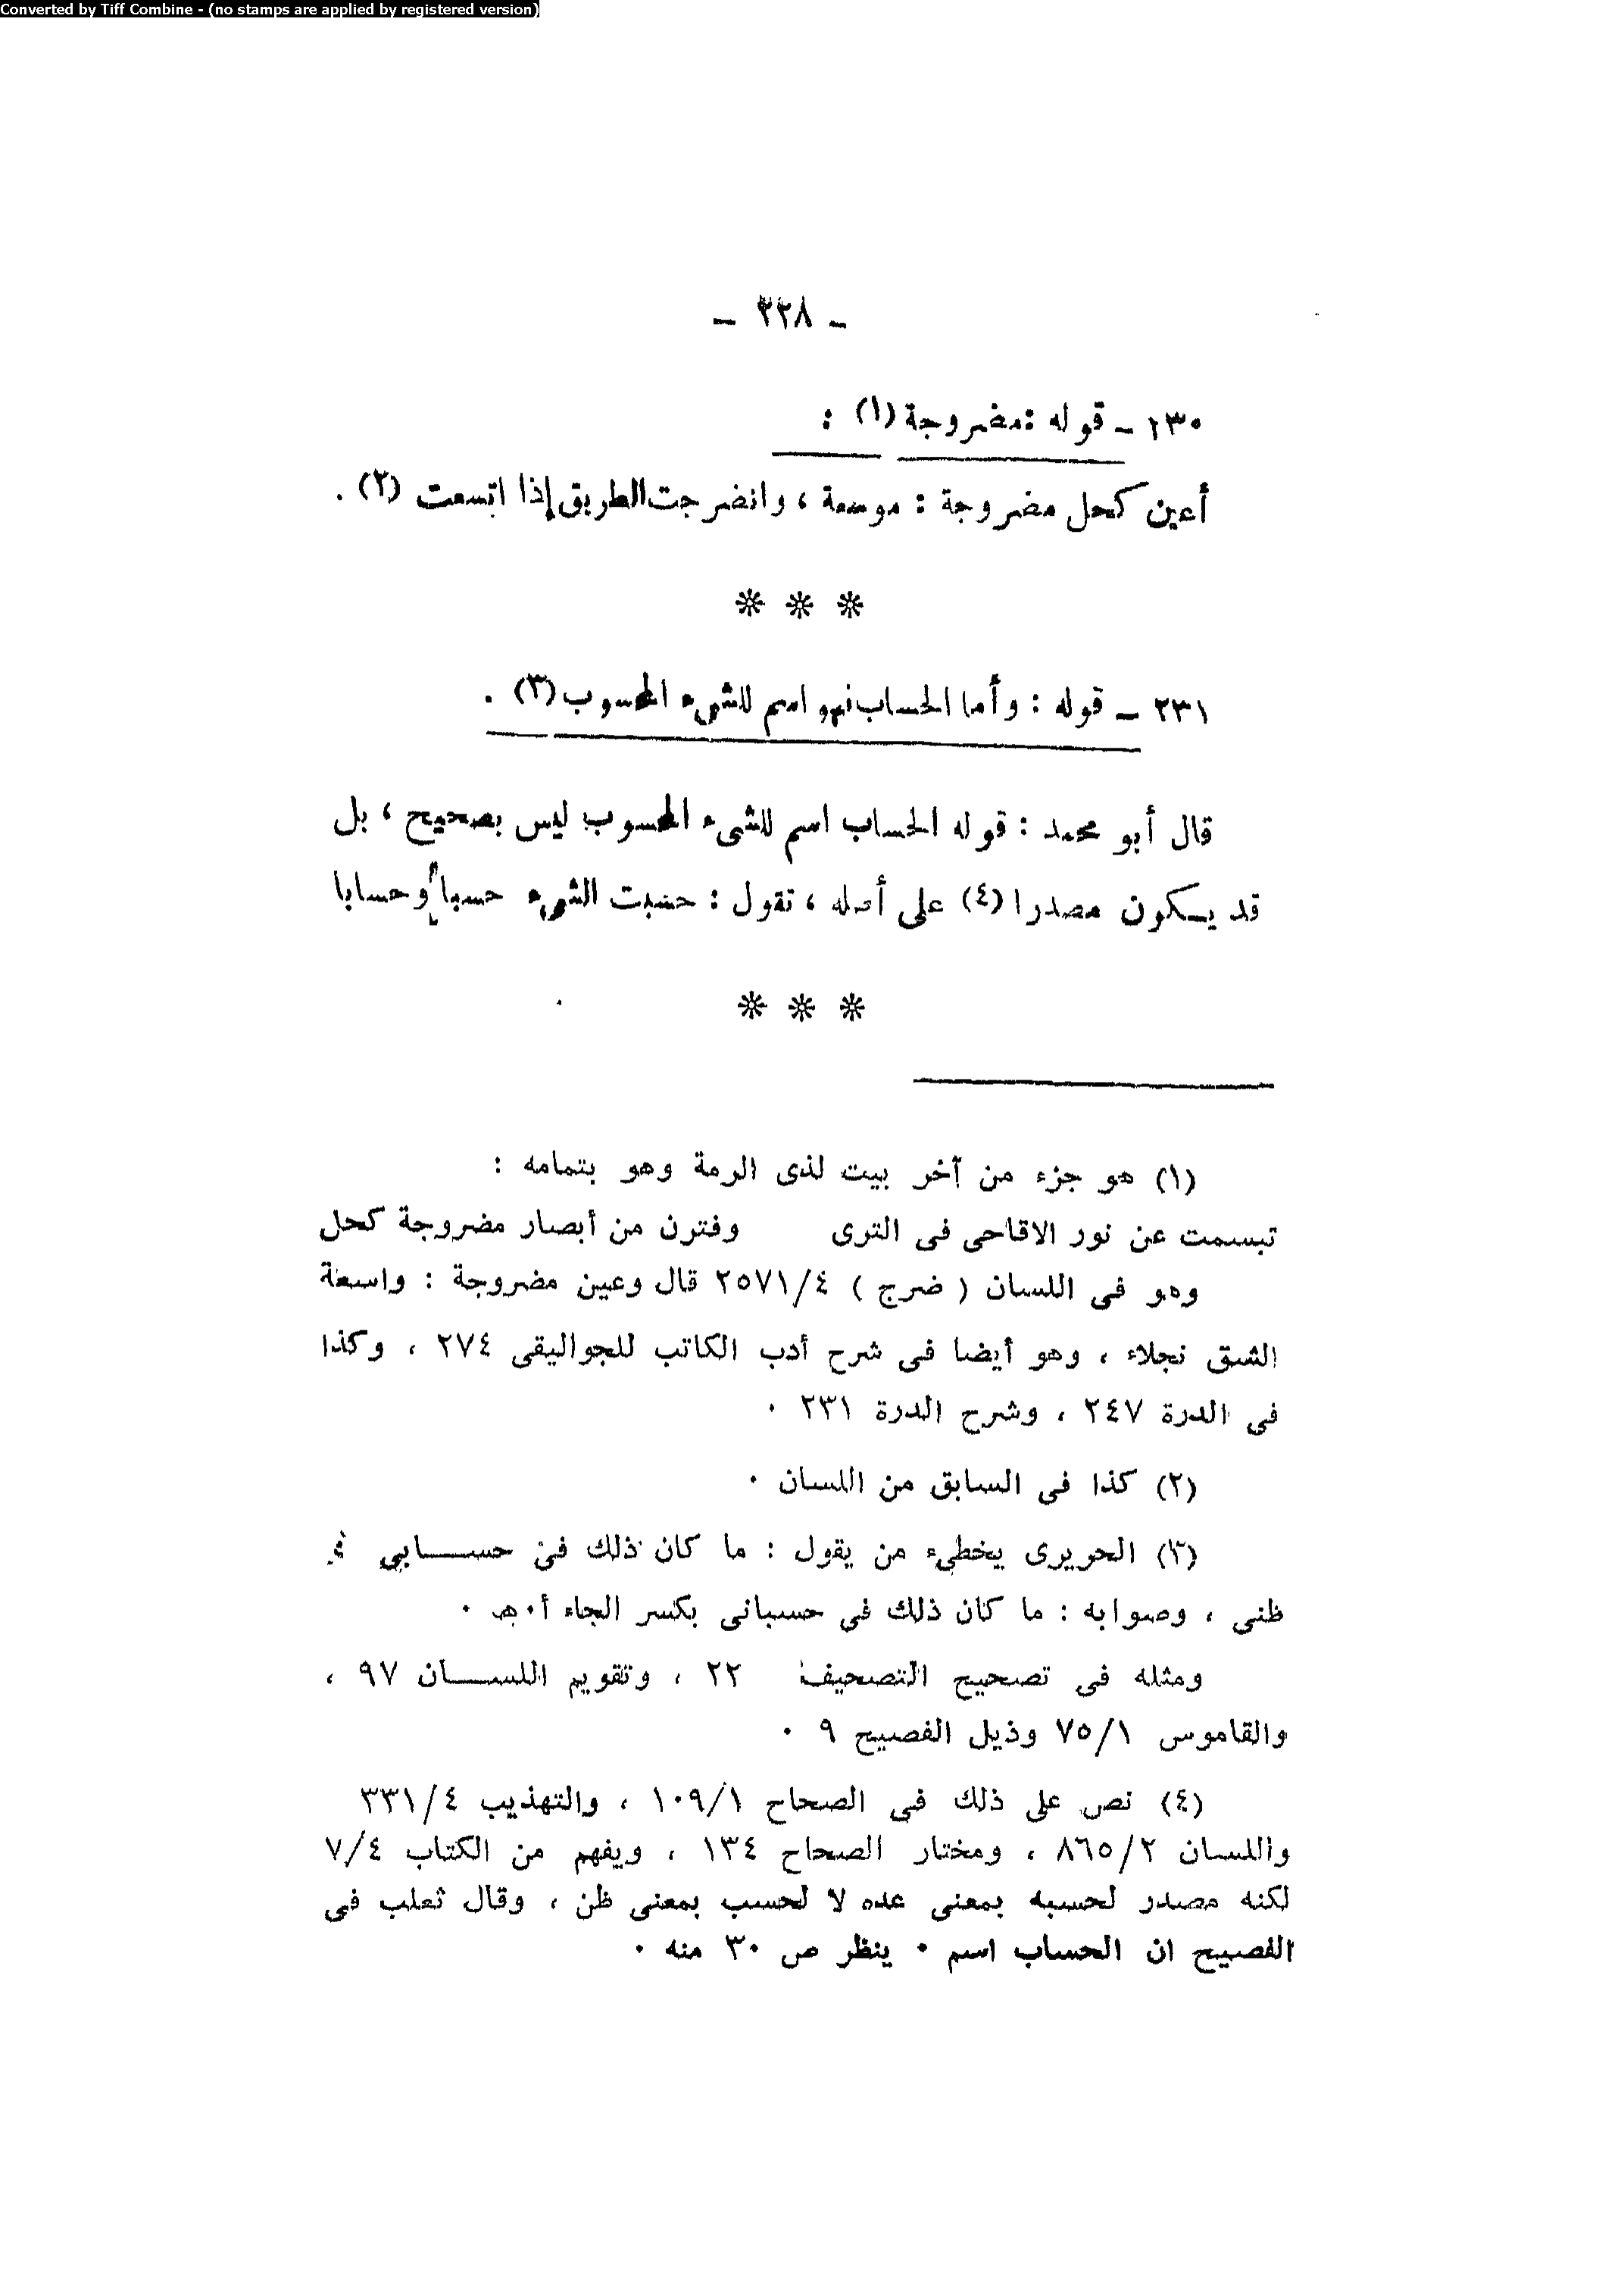 Converted by Tiff Combine - (no stamps are applied by registered version)
ـ ٢٢٨ ـ
٢٣٠ ـ قوله : مضروجة (١) :
أعين كحل مضروجة : موسعة ، وانضرجت الطريق إذا اتسعت (٢) .
* * *
٢٣١ ـ قوله : وأما الحساب فهو اسم للشىء المحسوب (٣) .
قال أبو محمد : قوله الحساب اسم للشىء المحسوب ليس بصحيح ، بل
قد يكون مصدرا (٤) على أصله ، تقول : حسبت الشىء حسبا وحسابا
* * *
(١) هو جزء من آخر بيت لذى الرمة وهو بتمامه :
تبسمت عن نور الاقاحى فى الترى وفترن من أبصار مضروجة كحل
وهو فى اللسان ( ضرج ) ٢٥٧١/٤ قال وعين مضروجة : واسعة
الشق نجلاء ، وهو أيضا فى شرح أدب الكاتب للجواليقى ٢٧٤ ، وكذا
فى الدرة ٢٤٧ ، وشرح الدرة ٢٣١ .
(٢) كذا فى السابق من اللسان .
(٣) الحريرى يخطىء من يقول : ما كان ذلك فى حســابى فى
ظنى ، وصوابه : ما كان ذلك فى حسبانى بكسر الحاء أ.هـ .
ومثله فى تصحيح التصحيف ٢٢ ، وتقويم اللســان ٩٧ ،
والقاموس ٧٥/١ وذيل الفصيح ٩ .
(٤) نص على ذلك فى الصحاح ١٠٩/١ ، والتهذيب ٣٣١/٤
واللسان ٨٦٥/٢ ، ومختار الصحاح ١٣٤ ، ويفهم من الكتاب ٧/٤
لكنه مصدر لحسبه بمعنى عده لا لحسب بمعنى ظن ، وقال ثعلب فى
الفصيح ان الحساب اسم . ينظر ص ٣٠ منه .